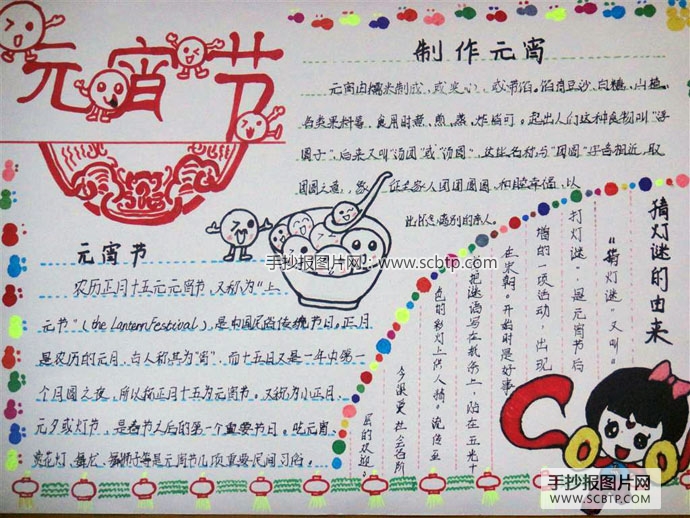 元宵节
制作元宵
元宵由糯米制成，或实心，或带馅。馅有豆沙、白糖、山楂、
各类果料等，食用时煮、煎、蒸、炸皆可。起出人们这种食物叫“浮
圆子”，后来又叫“汤团”或“汤圆”，这些名称与“团圆”字音相近，取
团圆之意，象征全家人团团圆圆，和睦幸福，以
此怀念离别的亲人。
元宵节
农历正月十五元元宵节，又称为“上
元节”(the Lantern Festival)，是中国民俗传统节日。正月
是农历的元月，古人称其为“宵”，而十五日又是一年中第一
个月圆之夜，所以称正月十五为元宵节。又称为小正月、
元夕或灯节，是春节之后的第一个重要节日。吃元宵、
赏花灯、舞龙、舞狮子等是元宵节几项重要民间习俗。
猜灯谜的由来
“猜灯谜”又叫“
打灯谜”，是元宵节后
增的一项活动，出现
在宋朝。开始时是好事
把谜语写在纸条上，贴在五光十
色的彩灯上供人猜。
今很受社会各阶
层的欢迎
手抄报图片网：www.scbtp.com
手抄报图片网
WWW.SCBTP.COM